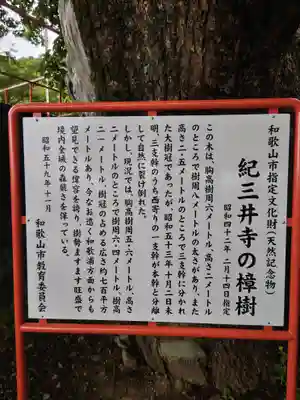 和歌山市指定文化財(天然記念物)
紀三井寺の樟樹
昭和四十二年 二月十四日指定
この木は、胸高樹周六メートル、高さ二メートル
のところで樹周八メートルの太さがあり、また
高さ二・五メートルのところで三支幹に分かれ
た大樹冠であったが、昭和五十三年十月二日未
明、三支幹のうち西寄りの一支幹が本幹と分離
して自然に裂け倒れた。
しかし、現況では、胸高樹周五・六メートル、高さ
二メートルのところで樹周六・四メートル、樹高
二一メートル、樹冠の占める広さ約七百平方
メートルあり、今なお遥く和歌浦方面からも
望見できる偉容を誇り、樹勢ますます旺盛で
境内全域の森厳さを保っている。
昭和五十九年十一月
和歌山市教育委員会